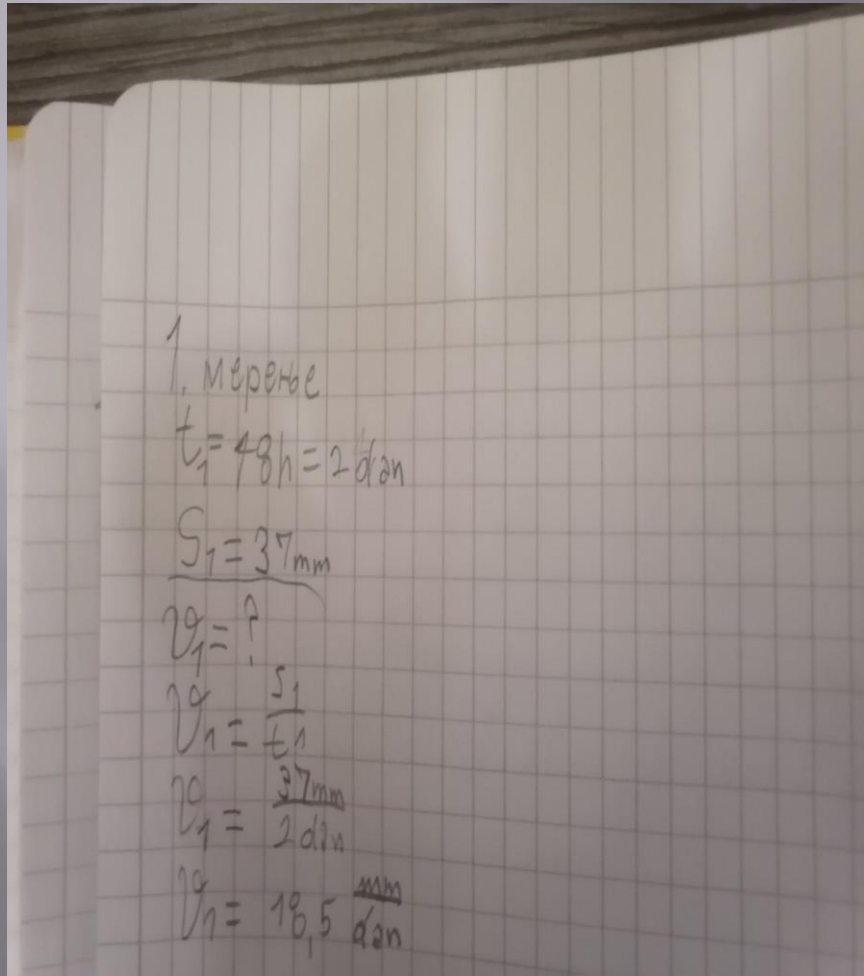 1. мерење
t₁=48h=2dan
S₁=37mm
v₁=?
v₁=s₁/t1
v₁=37mm/2dan
v₁=18,5 mm/dan